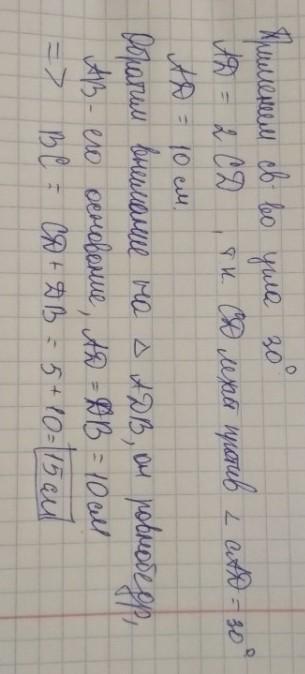 Применяем св-во угла 30°
AD = 2 CD, т.к. CD лежит против ∠ CAD = 30°
AD = 10 см.
Обратим внимание на △ ADB, он равнобедр,
AB - его основание, AD = DB = 10 см
=> BC = CD + DB = 5 + 10 = 15 см